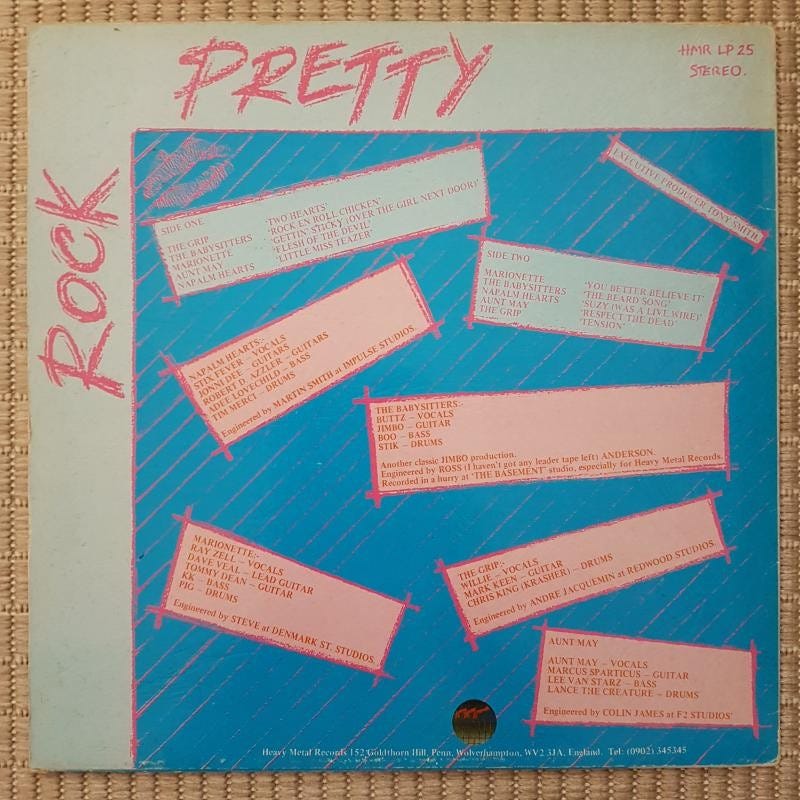 PRETTY
ROCK
HMR LP 25
STEREO.
EXECUTIVE PRODUCER TONY SMITH
SIDE ONE
THE GRIP 'TWO HEARTS'
THE BABYSITTERS 'ROCK EN ROLL CHICKEN'
MARIONETTE 'GETTIN' STICKY (OVER THE GIRL NEXT DOOR)'
AUNT MAY 'FLESH OF THE DEVIL'
NAPALM HEARTS 'LITTLE MISS TEAZER'
SIDE TWO
MARIONETTE 'YOU BETTER BELIEVE IT'
THE BABYSITTERS 'THE BEARD SONG'
NAPALM HEARTS 'SUZY (WAS A LIVE WIRE)'
AUNT MAY 'RESPECT THE DEAD'
THE GRIP 'TENSION'
NAPALM HEARTS:-
STIX FEVER – VOCALS
JONNI DEE – GUITARS
ROBERT D. AZZLER – GUITARS
ADEE LOVECHILD – BASS
TIM MERCI – DRUMS
Engineered by MARTIN SMITH at IMPULSE STUDIOS.
THE BABYSITTERS:-
BUTTZ – VOCALS
JIMBO – GUITAR
BOO – BASS
STIK – DRUMS
Another classic JIMBO production.
Engineered by ROSS (I haven't got any leader tape left) ANDERSON.
Recorded in a hurry at 'THE BASEMENT' studio, especially for Heavy Metal Records.
MARIONETTE:-
RAY ZELL – VOCALS
DAVE VEAL – LEAD GUITAR
TOMMY DEAN – GUITAR
KK – BASS
PIG – DRUMS
Engineered by STEVE at DENMARK ST. STUDIOS.
THE GRIP:-
WILLIE – VOCALS
MARK KEEN – GUITAR
CHRIS KING (KRASHER) – DRUMS
Engineered by ANDRE JACQUEMIN at REDWOOD STUDIOS.
AUNT MAY
AUNT MAY – VOCALS
MARCUS SPARTICUS – GUITAR
LEE VAN STARZ – BASS
LANCE THE CREATURE – DRUMS
Engineered by COLIN JAMES at F2 STUDIOS'
Heavy Metal Records 152 Goldthorn Hill, Penn, Wolverhampton, WV2 3JA, England. Tel: (0902) 345345